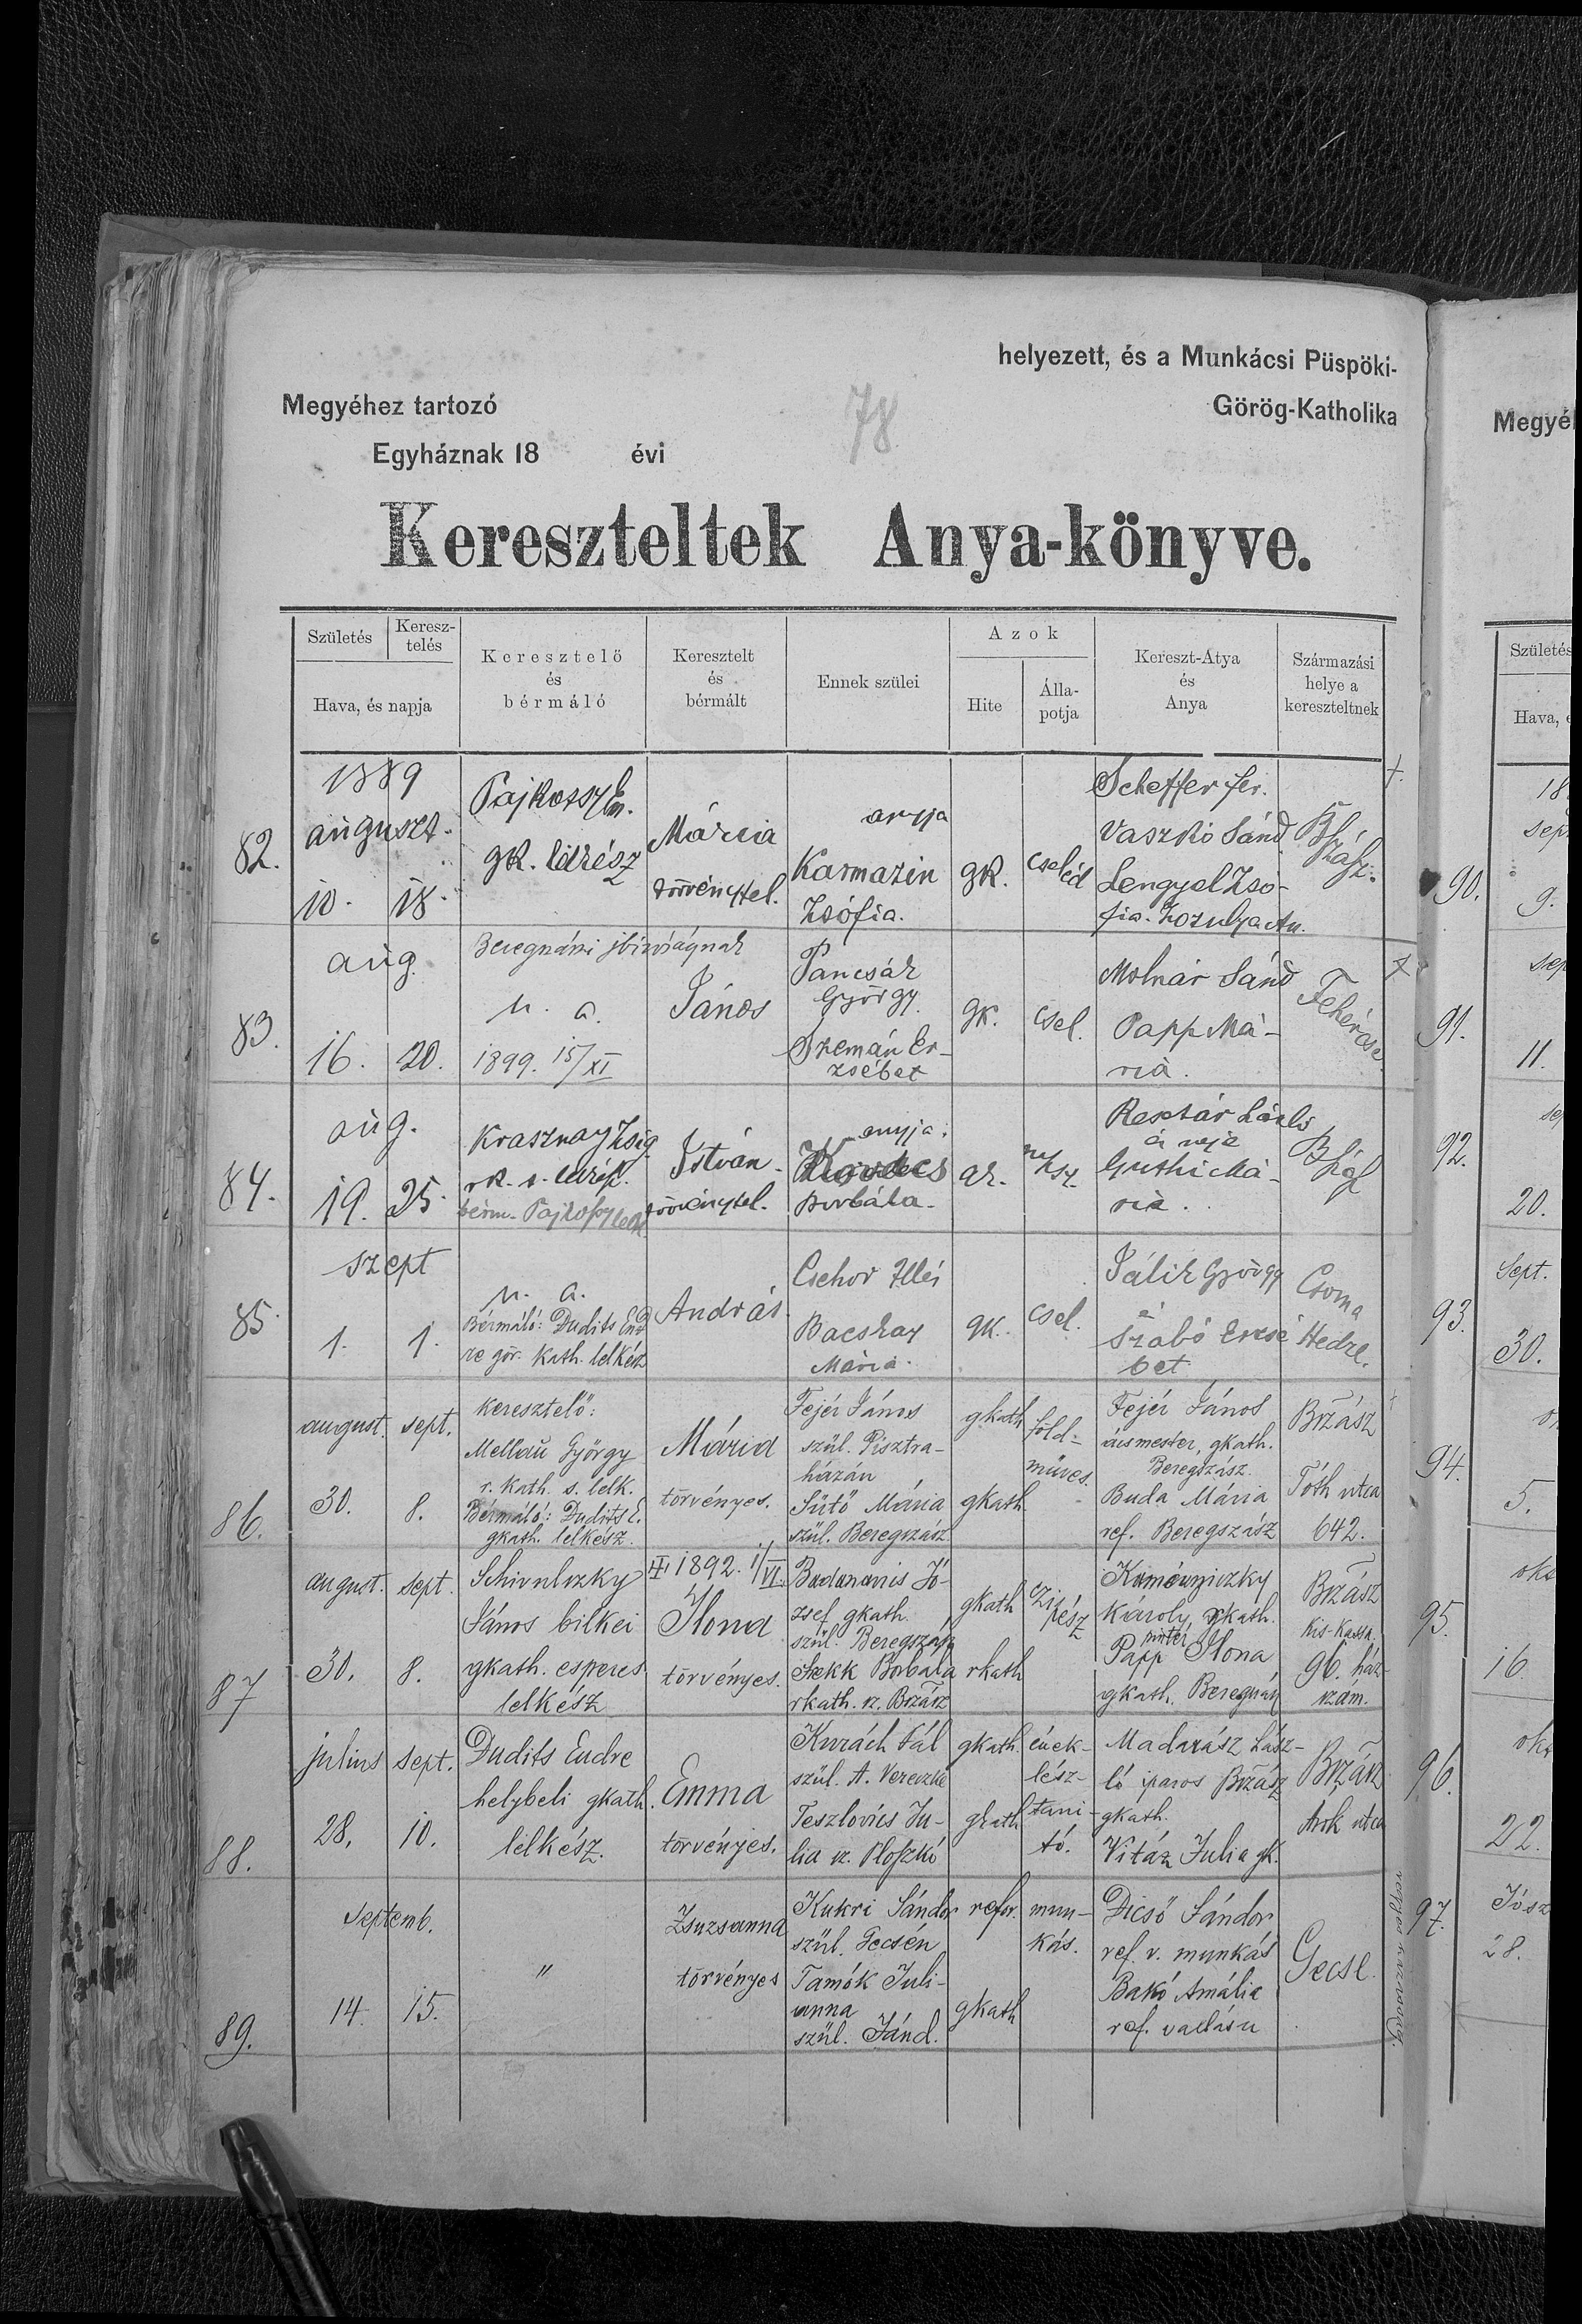 helyezett, és a Munkácsi Püspöki-
Megyéhez tartozó
78
Görög-Katholika
Egyháznak 18 évi
Kereszteltek Anya-könyve.
Születés
Keresz-
telés
Hava, és napja
Keresztelö
és
bérmáló
Keresztelt
és
bérmált
Ennek szülei
Azok
Hite
Álla-
potja
Kereszt-Atya
és
Anya
Származási
helye a
kereszteltnek
82.
1889
auguszt.
10. 18.
Pajkossy En.
gk. lelkész
Mária
törvénytel.
anyja
Karmazin
Zsófia.
gk.
cseléd
Scheffer fer.
Vaszkó Sánd.
Lengyel Zsó-
fia. Kozulya An.
83.
aug.
16. 20.
u. a.
1899. 15/XI
János
Pancsák
György.
Szemán Er-
zsébet
gk.
csel.
Molnár Sánd
Papp Má-
ria.
84.
aug.
19. 25.
Krasznay Zsig.
István.
törvénytel.
anyja.
Kovács
Borbála.
Resztár László
és neje
Guthi Má-
ria.
85.
szept
1. 1.
u. a.
Bérmáló: Dudits End
re gör. kath. lelkész
András.
Csehor Illés
Bacskay
Mária.
gk.
csel.
Jálik György
é
Szabó Erzsé
bet
Csoma
86.
august. sept.
30. 8.
Keresztelő:
Mellau György
r. kath. s. lelk.
Bérmáló: Dudits E.
gkath. lelkész.
Mária
törvényes.
Fejér János
szül. Pisztra-
házán
Sütő Mária
szül. Beregszász
gkath
gkath
föld-
műves.
Fejér János
ácsmester, gkath.
Beregszász.
Buda Mária
ref. Beregszász
Brzász
Tóth utca
642.
87
august. sept.
30. 8.
János bilkei
gkath. esperes
lelkész
1892. 1/VI.
Ilona
törvényes.
Badanavis Jó-
zsef gkath.
szül. Beregszász
Szekk Borbála
rkath. sz. Brzász
gkath
rkath
Károly, gkath.
Papp Ilona
gkath.
Brzász
kis-kassa.
96. ház
szám.
88.
julius sept.
28. 10.
Dudits Endre
helybeli gkath.
lelkész.
Emma
törvényes.
Kurách Pál
szül. A. Vereczke
Teszlovics Ju-
lia sz. Ploszkó
gkath.
gkath
ének-
lész-
tani-
tó.
Madarász Lász-
ló iparos Brzász
gkath.
Vitáz Julia gk.
Brzász
Árok utca
89.
Septemb.
14. 15.
"
Zsuzsanna
törvényes
Kukri Sándor
szül. Gecsén
Tamók Juli-
anna
szül. Jánd.
refor.
gkath
mun-
kás.
Dicső Sándor
ref. v. munkás
Bakó Amália
ref. vallásu
Gecse.
Megyé
Születés
Hava,
18
sep
90.
9.
sep
91.
11.
92.
20.
Sept.
93.
30.
94.
5.
okt
95.
16.
okt
96.
22.
97.
28.